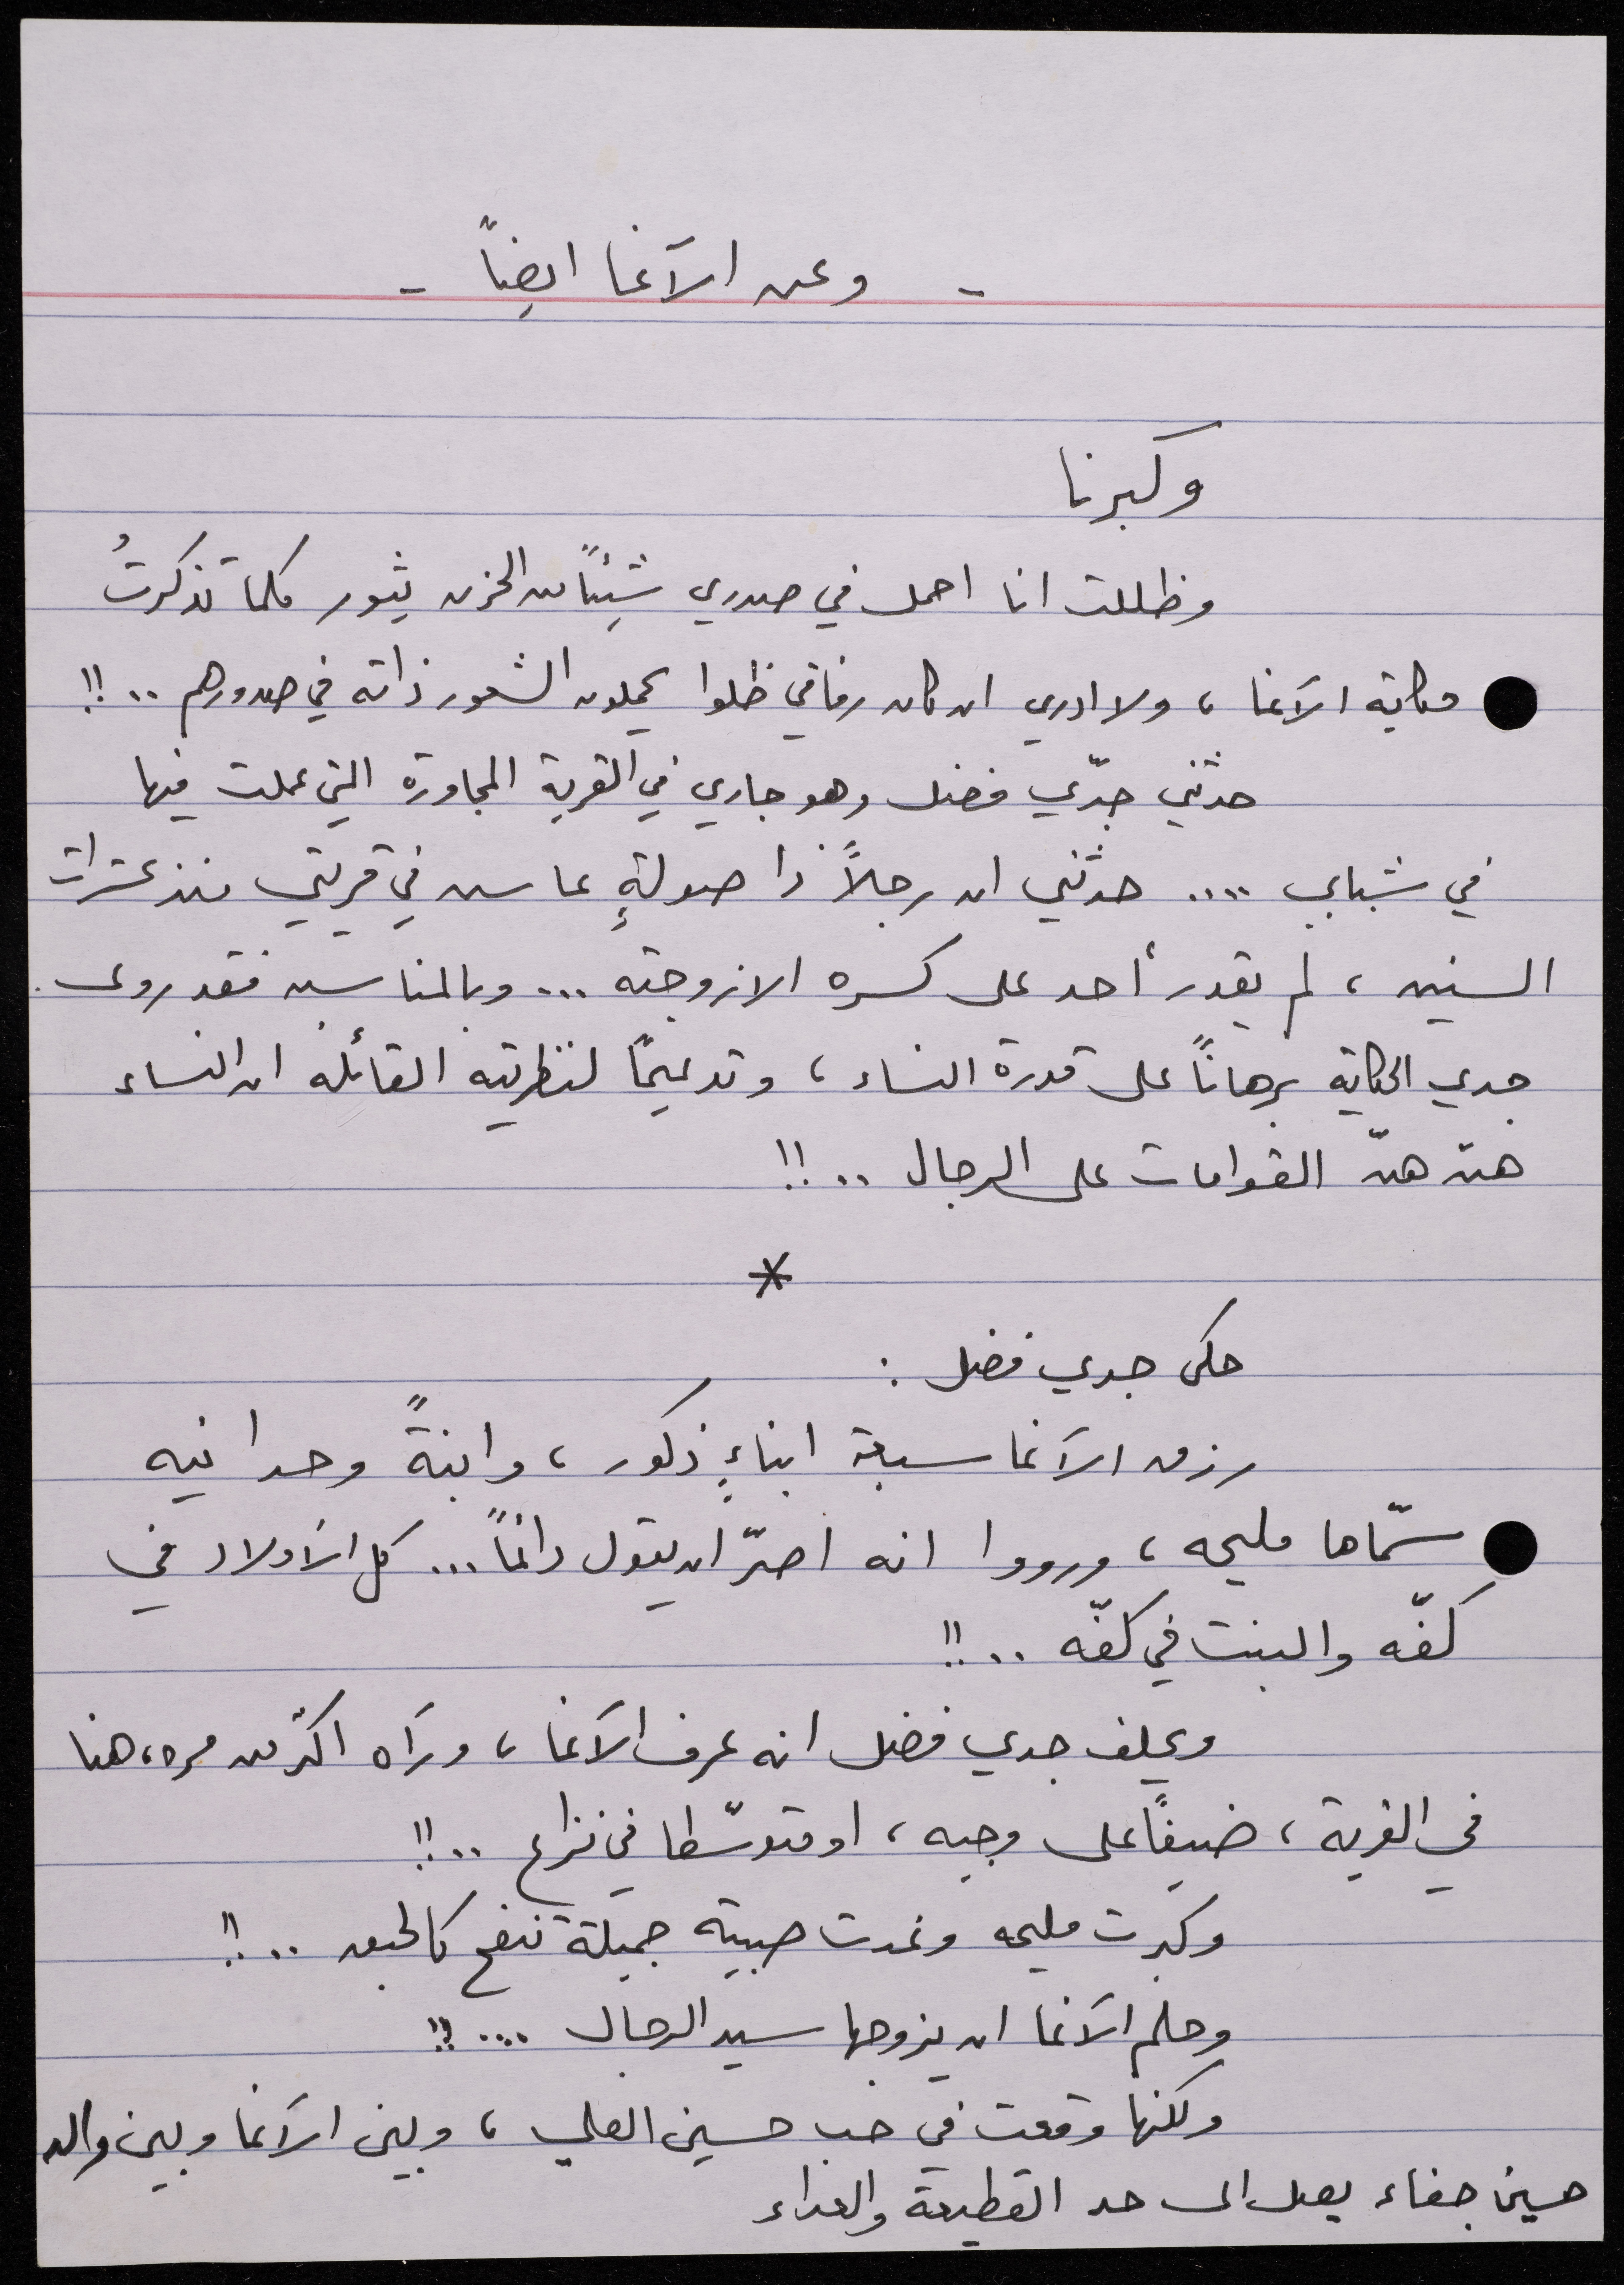 - وعن الآغا ايضاً -
وكبرنا
وظللت انا احمل في صدري شيئاً من الحزن يثور كلما تذكرتُ
حكاية الآغا ، ولا ادري ان كان رفاقي ظلوا يحملون الشعور ذاته في صدورهم ..!!
حدثني جدّي فضل وهو جاري في القرية المجاورة التي عملت فيها
في شبابي .... حدثني ان رجلاً ذا صولةٍ عاش في قريتي منذ عشرات
السنين ، لم يقدر أحد على كسره الا زوجته ... وبالمناسبه فقد روى
جدي الحكاية برهاناً على قدرة النساء ، وتدعيماً لنظريته القائله ان النساء
هن هنّ القوامات على الرجال ..!!
*
حكى جدي فضل :
رزق الآغا سبعة ابناءٍ ذكور ، وابنةً وحدانيه
سمّاها مليحه ، ورووا انه اصرّ ان يقول دائماً ... كل الأولاد في
كفّه والبنت في كفّه ..!!
ويحلف جدي فضل انه عرف الآغا ، ورآه اكثر من مره ، هنا
في القرية ، ضيفاً على وجبه ، او متوسّطا في نزاع ..!!
وكبرت مليحه وغدت صبية جميلة تنفح كالحبق ..!!
وحلم الآغا ان يزوجها سيد الرجال ....!!
ولكنها وقعت في حب حسين العلي ، وبين الآغا وبين والد
حسين جفاء يصل الى حد القطيعة والعداء